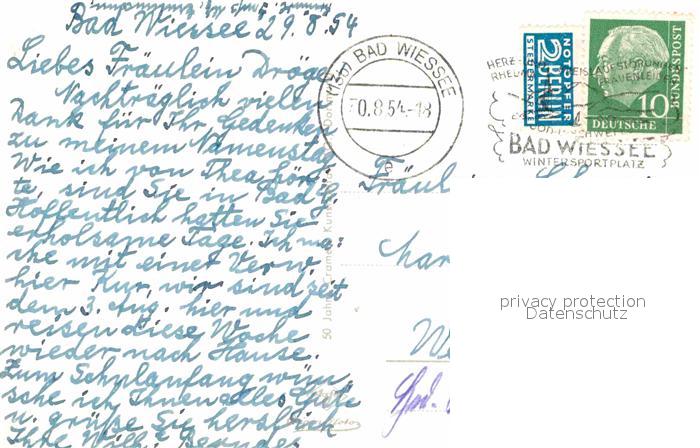 Bad Wiessee 29.8.54
Liebes Fräulein Dröge
Nachträglich vielen
Dank für Ihr Gedenken
zu meinem Namenstag
Wie ich von Thea hör-
te, sind Sie in Bad
Hoffentlich hatten Sie
erholsame Tage. Ich ma-
che mit einer Verw.
hier Kur, wir sind seit
dem 3. Aug. hier und
reisen diese Woche
wieder nach Hause.
Zum Schulanfang wün-
sche ich Ihnen alles Gute
u. grüße Sie herzlich
Ihre
(13b) BAD WIESSEE
30.8.54-18
NOTOPFER
2 BERLIN
STEUERMARKE
DEUTSCHE
BUNDESPOST
10
HERZ-
BAD WIESSEE
WINTERSPORTPLATZ
50 Jahre Cramers Kunst
Fräul
privacy protection
Datenschutz